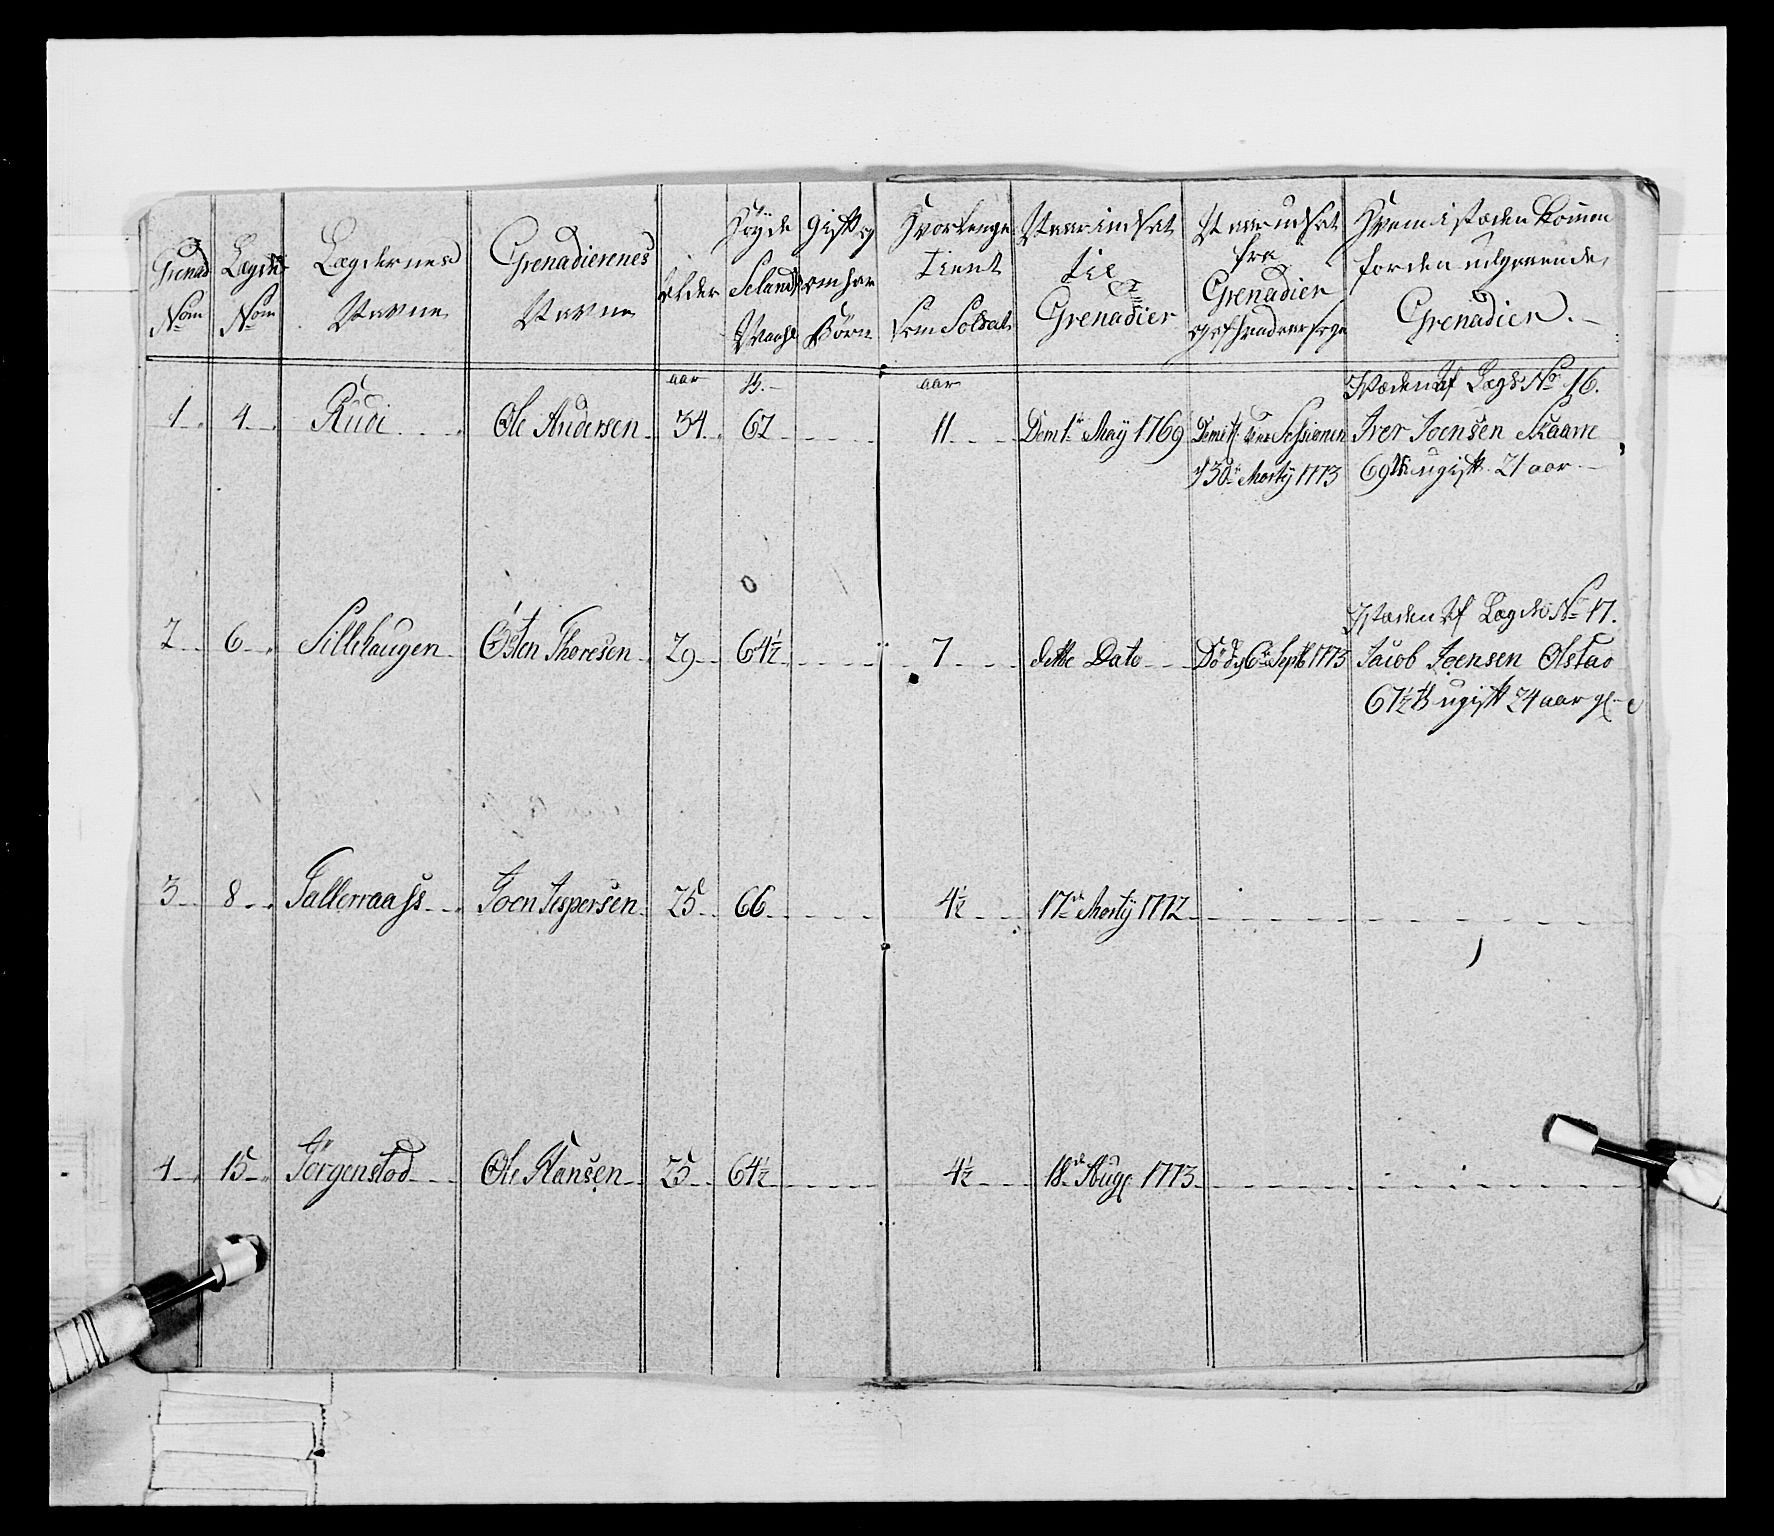 Grenad Nom
Lægds Nom
Lægdernes Navne
Grenadierenes Navne
Alder
Høyde Selands Maahl
Gift og om har Børn
Hvorlenge tient som Soldat
Naar indsat til Grenadier
Naar udsat fra Grenadier
Hvem i stæden kommen for den udgaaende Grenadier.
aar
aar
1 4 Rudi Ole Andersen 34 62 11 Den 1te Maÿ 1769
ved Sessionen
d 30te Martÿ 1773
I stæden af Legd No 16.
Iver Joensen Skaare
69 ugift 21 aar
2 6 Sillehaugen Østen Thoresen 29 64½ 7 dette Dato
Død d 6te Septb 1773
I stæden af Lægds No 17.
Jacob Joensen Olstad
67½ ugift 24 aar gl.
3 8 Tallerraass Joen Jespersen 25 66 4½ 17de Martÿ 1772
4 15 Jørgenstad Ole Hansen 25 64½ 4½ 18de Aug 1773